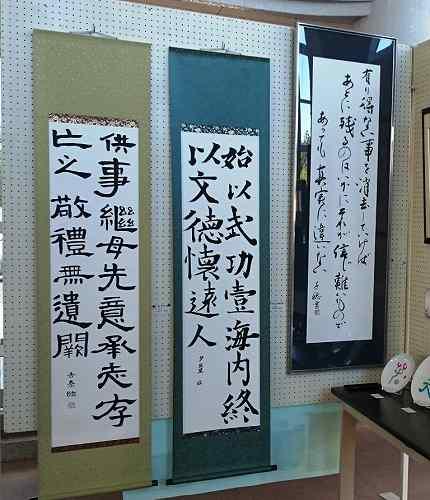 有り得ない事を消去してゆけば
あとに残るのはいかにそれが信じ難いもので
あっても真実に違いない
始以武功壹海内終
以文德懷遠人
供事繼母先意承志存
亡之敬禮無遺闕